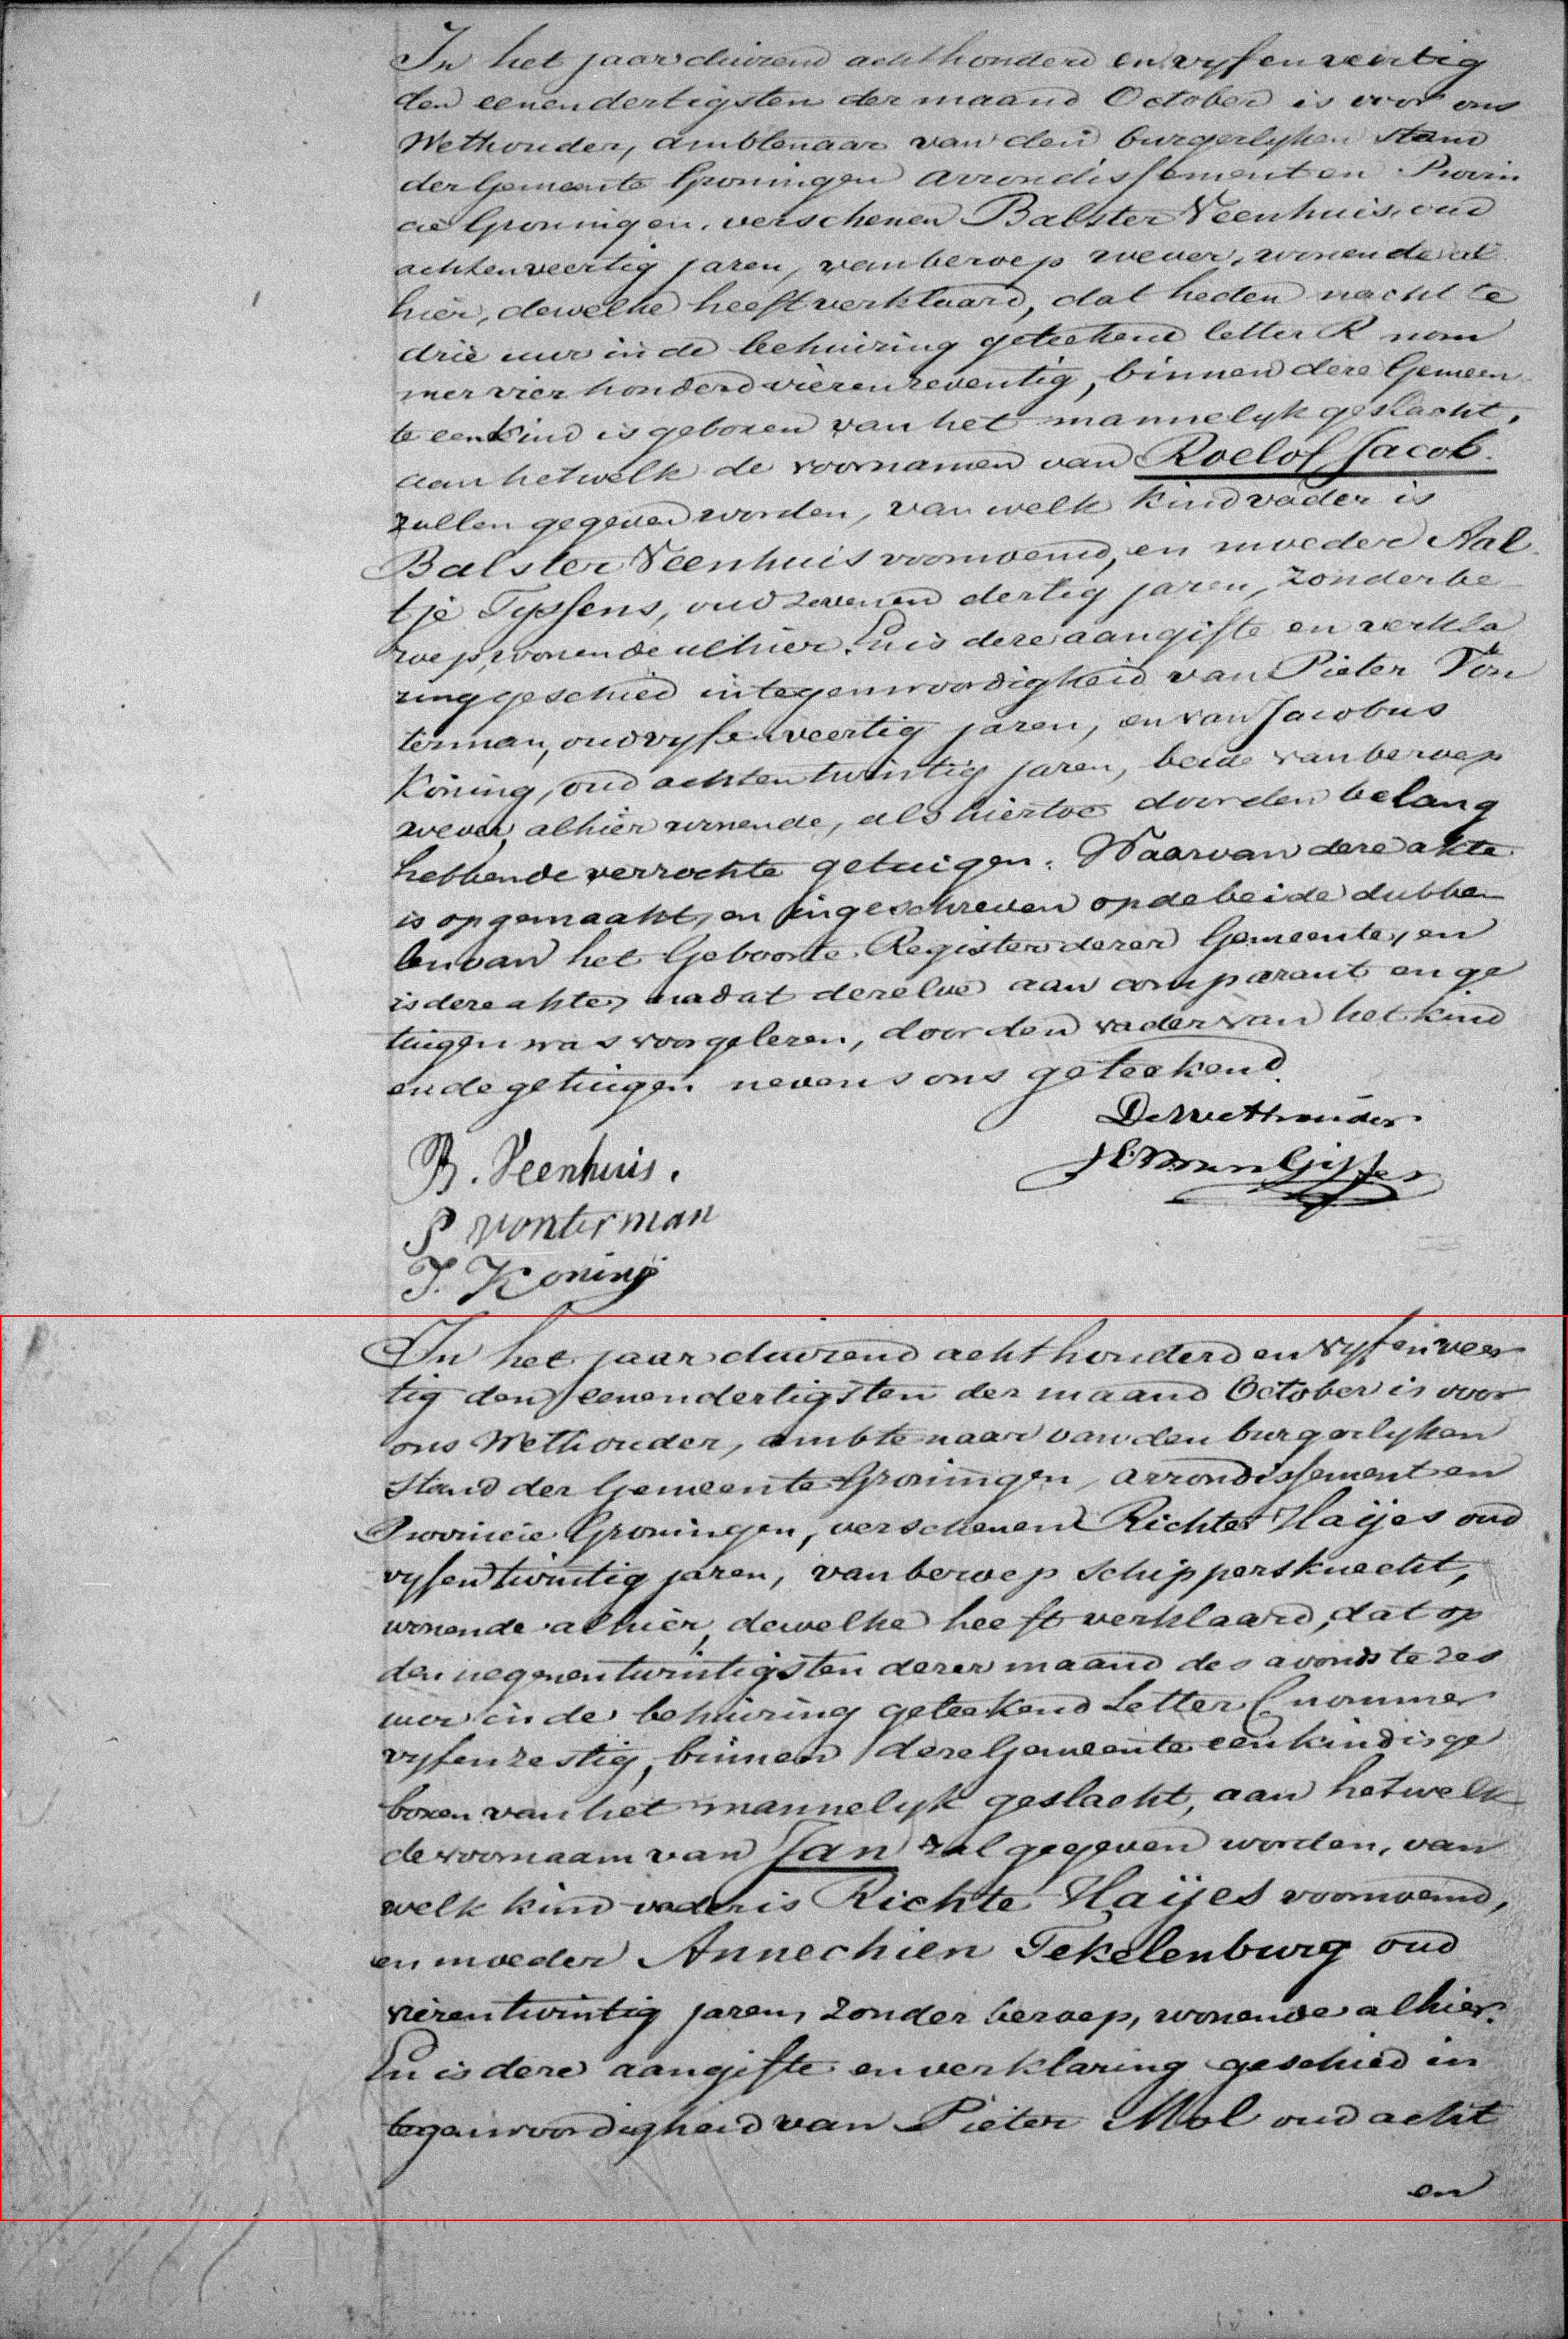 In het jaar duizend achthonderd en vyfenveertig
den eenendertigsten der maand October is voor ons
Wethouder, ambtenaar van den burgerlyken stand
der Gemeente Groningen arrondissement en Provin
cie Groningen, verschenen Balster Veenhuis, oud
achtenveertig jaren, van beroep wever, wonende al
hier, dewelke heeft verklaard, dat heden nacht te
drie uur in de behuizing geteekend letter R nom
mer vier honderd vierenzeventig, binnen deze Gemeen
te een kind is geboren van het mannelyk geslacht,
aan hetwelk de voornamen van Roelof Jacob
zullen gegeven worden, van welk kind vader is
Balster Veenhuis voornoemd, en moeder Aal
tje Tyssens, oud zevenen dertig jaren, zonder be
roep, wonende alhier. En is deze aangifte en verkla
ring geschied in tegenwoordigheid van Pieter Von
terman, oud vyfenveertig jaren, en van Jacobus
Koning, oud achtentwintig jaren, beide van beroep
wever, alhier wonende, als hiertoe door den belang
hebbende verzochte getuigen. Waarvan deze akte
is opgemaakt, en ingeschreven op de beide dubbe
len van het Geboorte Register dezer Gemeente, en
is deze akte, nadat dezelve aan comparant en ge
tuigen was voorgelezen, door den vader van het kind
en de getuigen nevens ons geteekend.
De Wethouder
B. Veenhuis.
P Vonterman
J. Koning
In het jaar duizend achthonderd en vyfenveer
tig den eenendertigsten der maand October is voor
ons Wethouder, ambtenaar van den burgerlyken
stand der Gemeente Groningen, arrondissement en
Provincie Groningen, verschenen Richte Haijes oud
vyfentwintig jaren, van beroep schippersknecht,
wonende alhier, dewelke heeft verklaard, dat op
den negenentwintigsten dezer maand des avonds te zes
uur in de behuizing geteekend Letter C nommer
vyfenzestig, binnen deze Gemeente een kind is ge
boren van het mannelyk geslacht, aan hetwelk
de voornaam van Jan zal gegeven worden, van
welk kind vader is Richte Haijes voornoemd,
en moeder Annechien Tekelenburg oud
vierentwintig jaren, zonder beroep, wonende alhier.
En is deze aangifte en verklaring geschied in
tegenwoordigheid van Pieter Mol oud acht
en